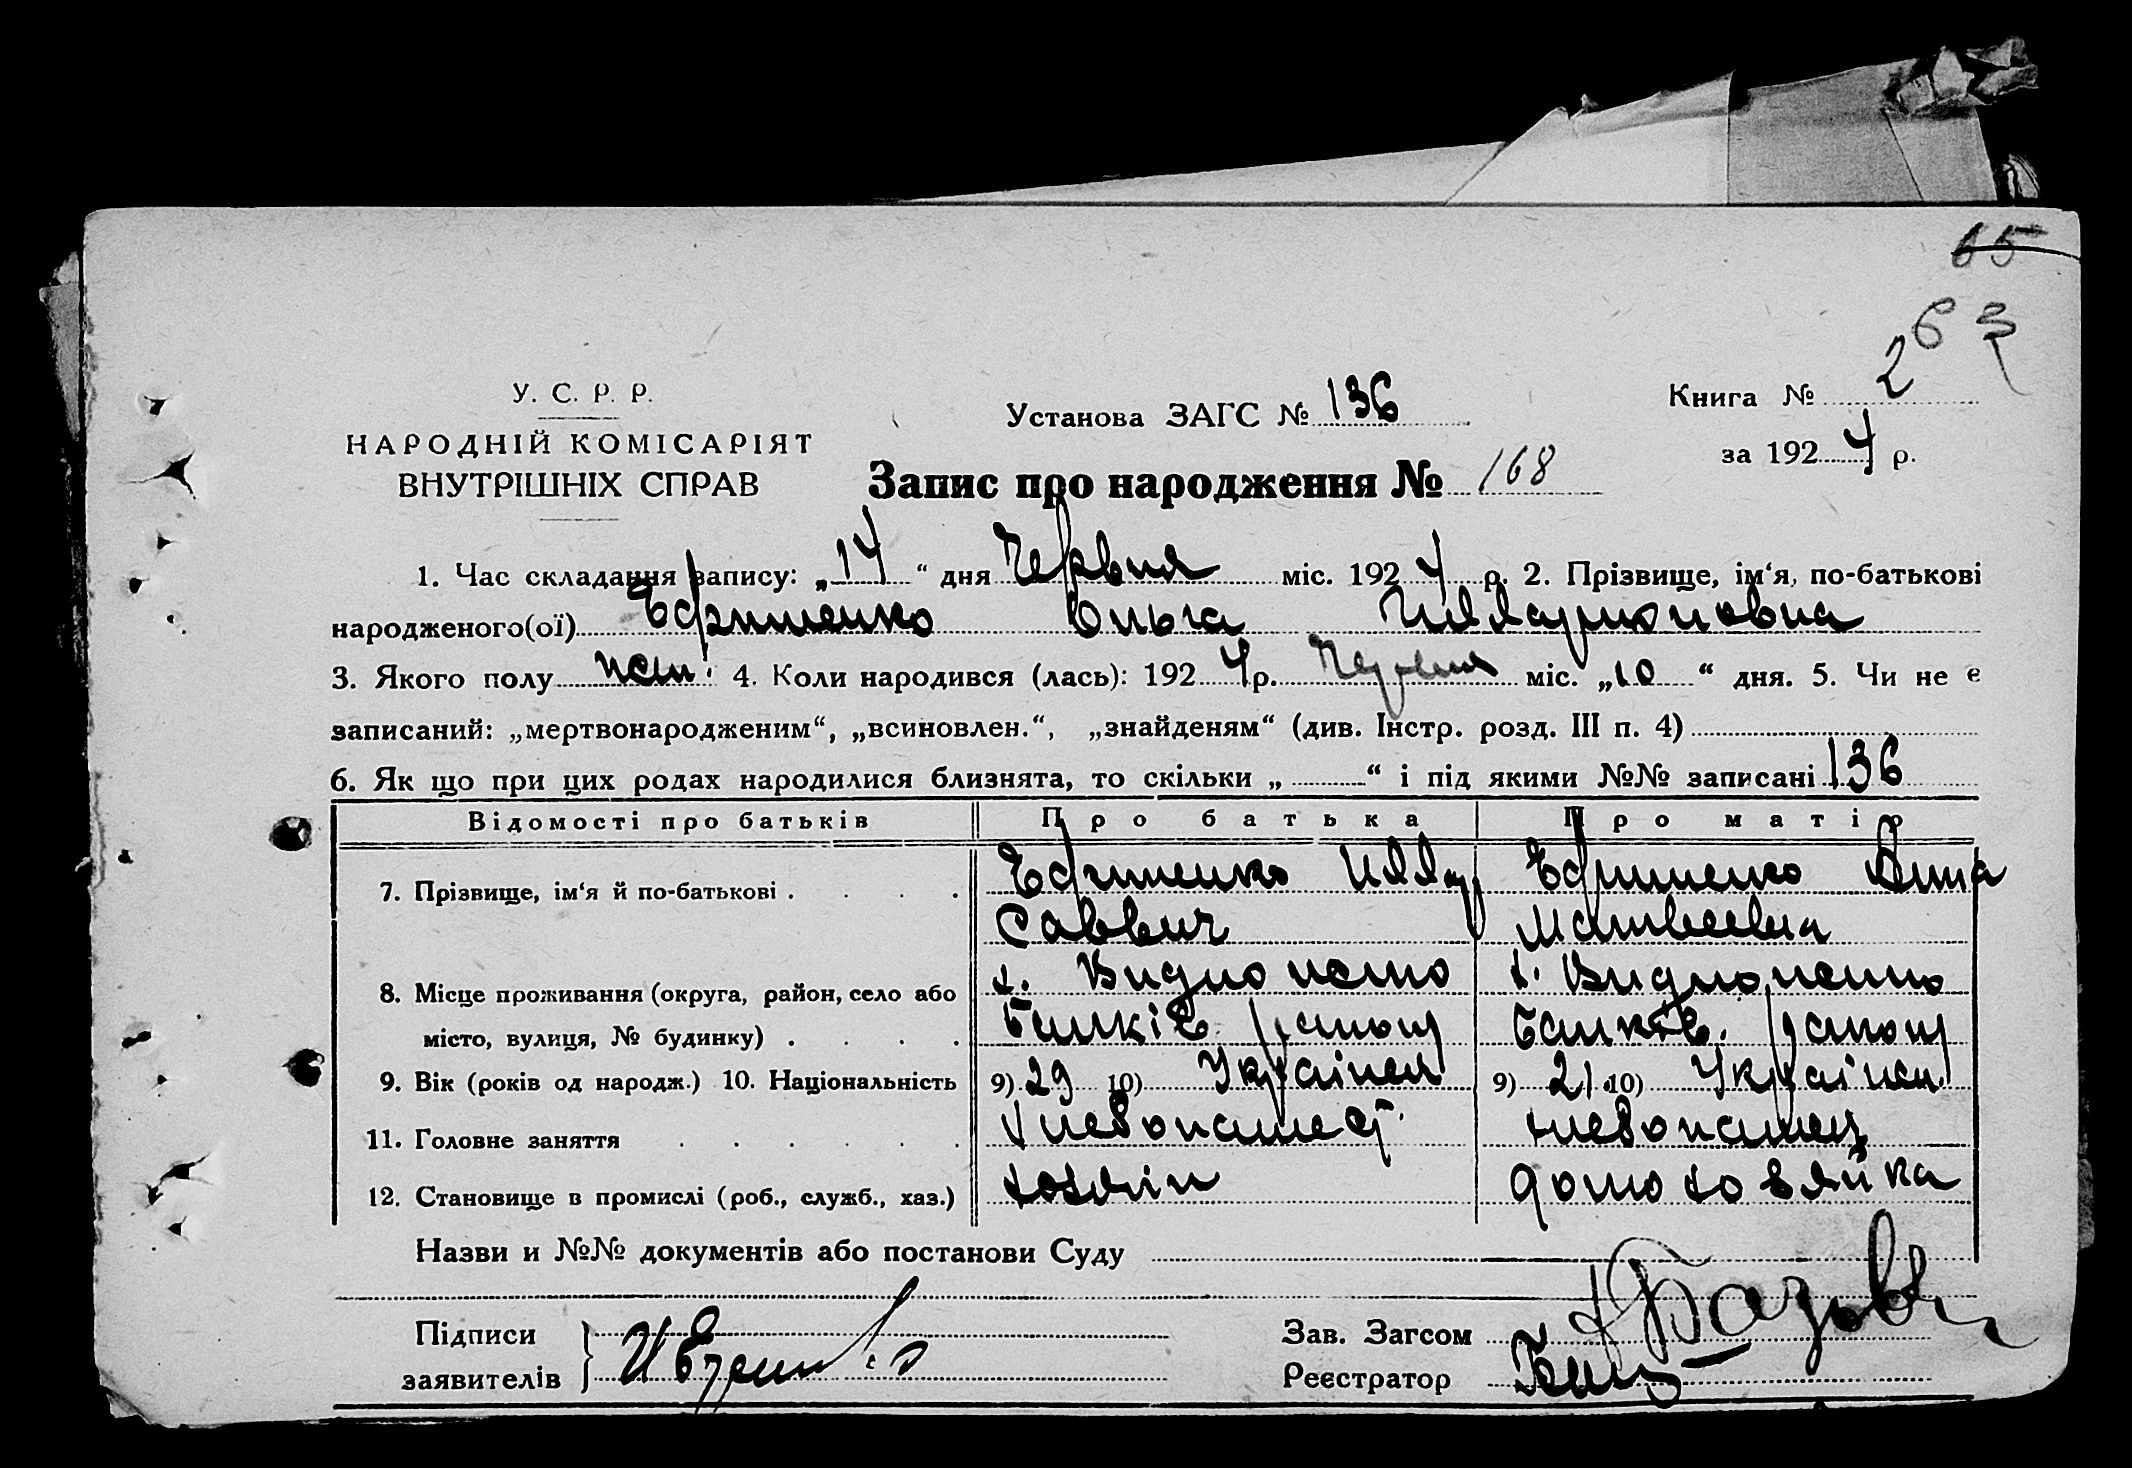 65
63
У. С. Р. Р.
НАРОДНІЙ КОМІСАРІЯТ
ВНУТРІШНІХ СПРАВ
Установа ЗАГС № 136
Книга № 2
за 1924 р.
Запис про народження № 168
1. Час складання запису: „14“ дня Червня міс. 1924 р. 2. Прізвище, ім‘я, по-батькові
народженого(ої) Ефименко Ольга Илларионовна
3. Якого полу жен. 4. Коли народився (лась): 1924 р. Червня міс. „10“ дня. 5. Чи не є
записаний: „мертвонародженим“, „всиновлен.“, „знайденям“ (див. Інстр. розд. III п. 4)
6. Як що при цих родах народилися близнята, то скільки „ “ і під якими №№ записані 136
Відомості про батьків Про батька Про матір
7. Прізвище, ім‘я й по-батькові . . . . Ефименко Иллар Ефименко Анна
Саввич Матвеевна
8. Місце проживання (округа, район, село або
місто, вулиця, № будинку) . . . .
9. Вік (років од народж.) 10. Національність 9) 29 10) Україней 9) 21 10) Україней
11. Головне заняття . . . . . .
12. Становище в промислі (роб., служб., хаз.) хозяін домохозяйка
Назви и №№ документів або постанови Суду
Підписи
заявителів
Зав. Загсом
Реєстратор